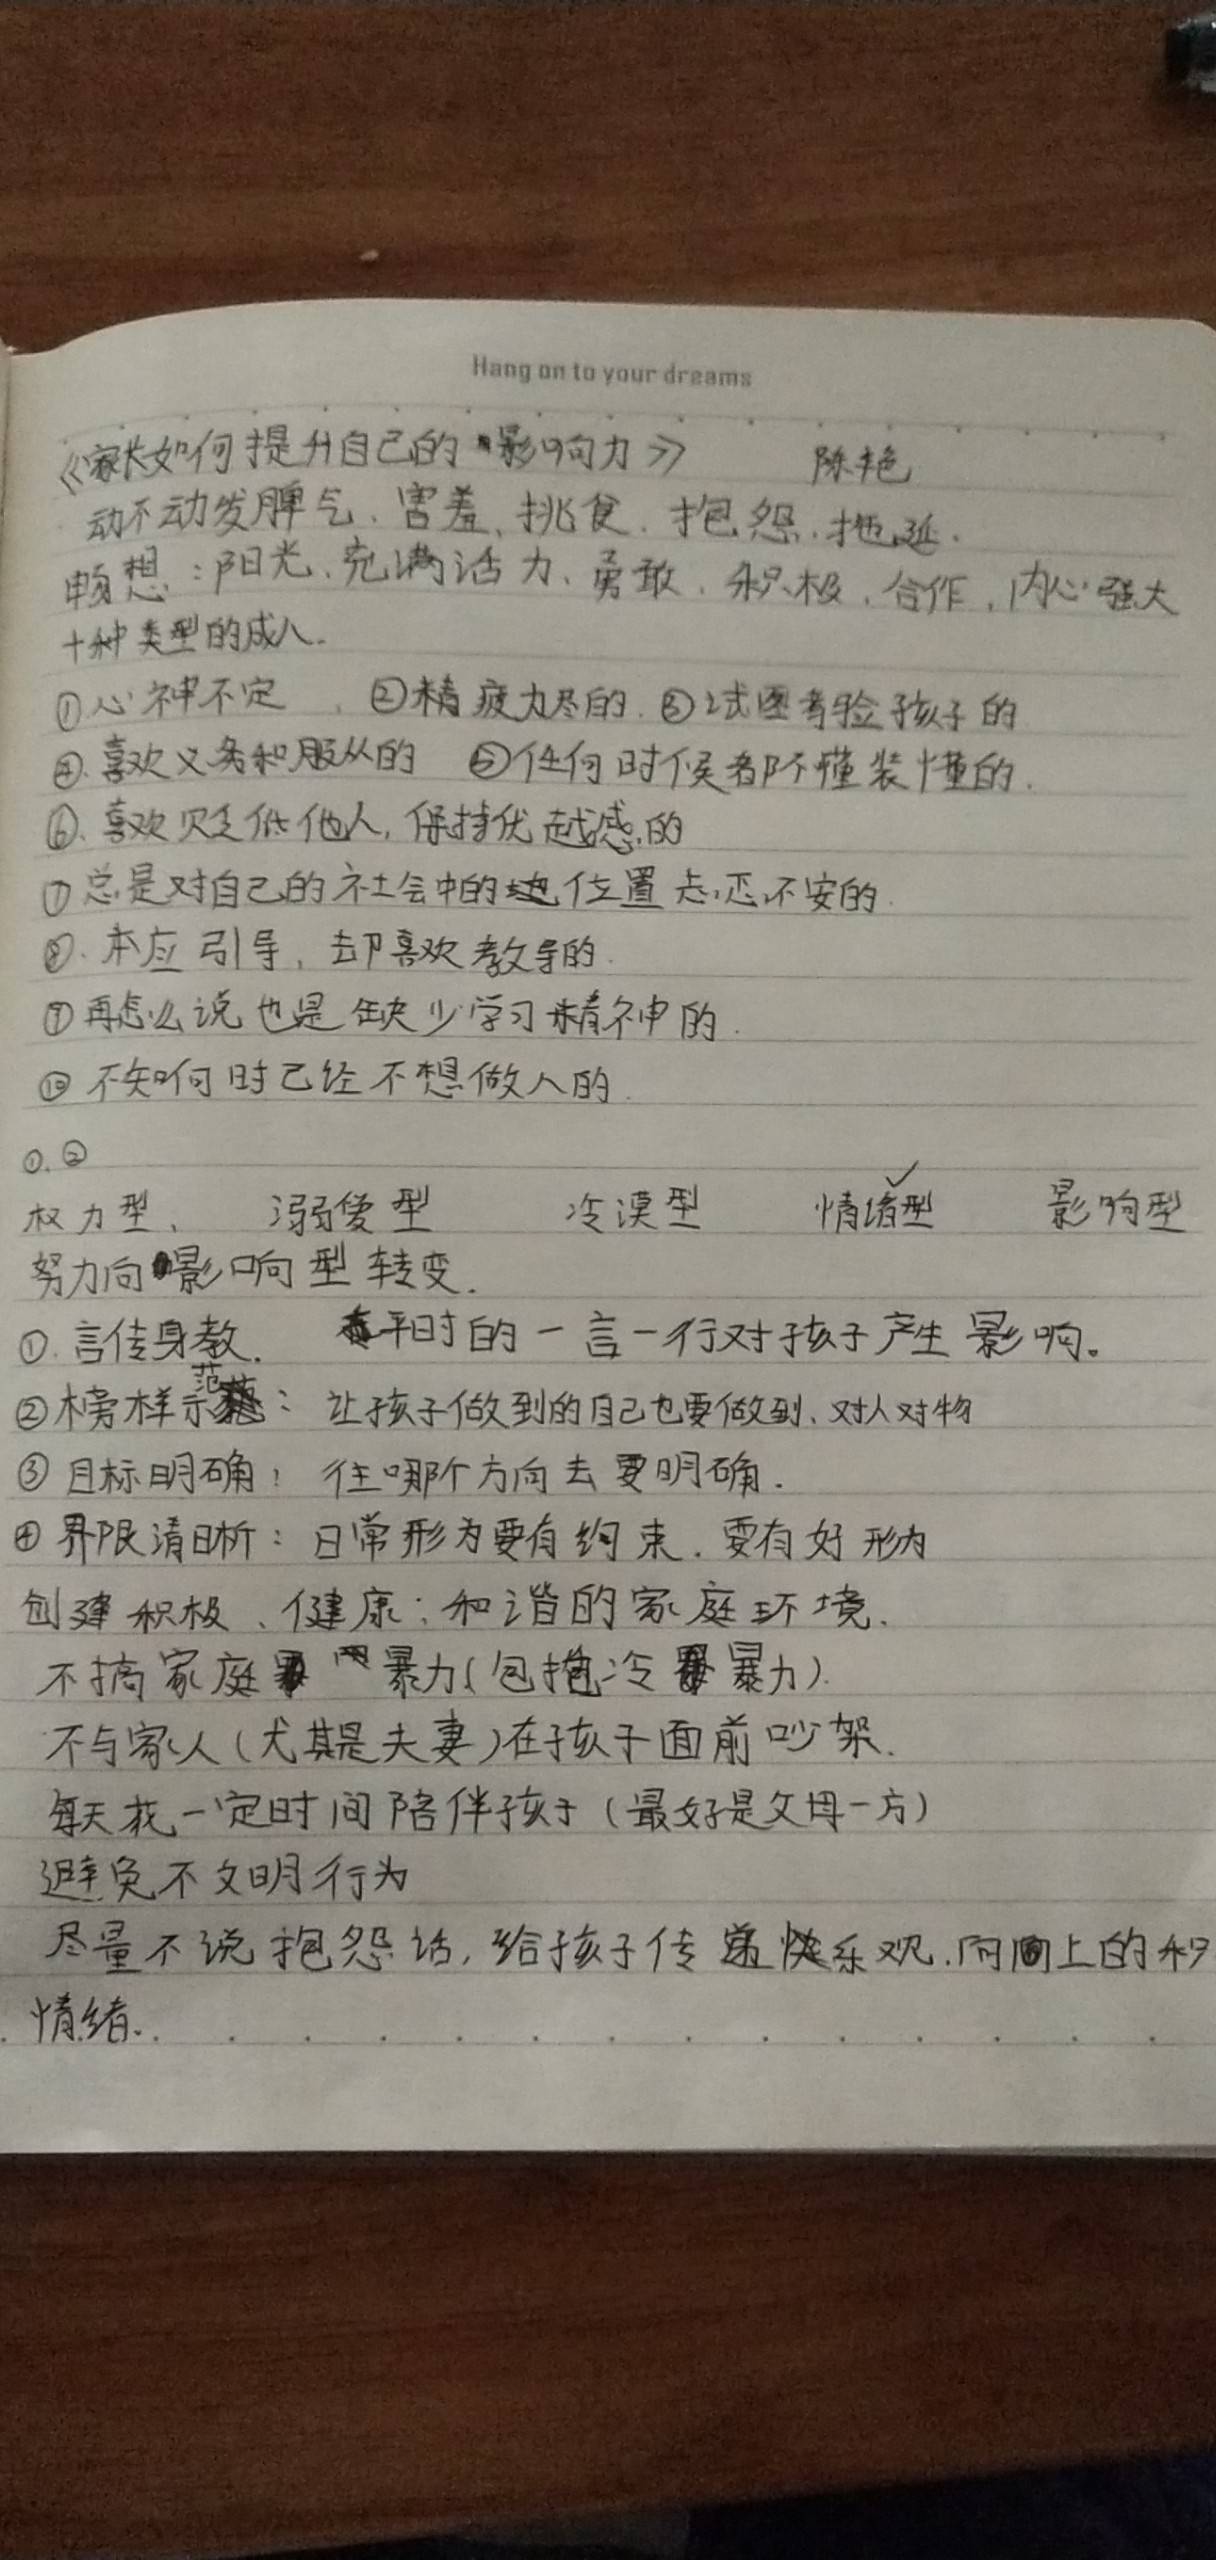 Hang on to your dreams
《家长如何提升自己的影响力》 陈艳
动不动发脾气、害羞、挑食、抱怨、拖延.
畅想：阳光、充满活力、勇敢、积极、合作、内心强大
十种类型的成人.
①心神不定、②精疲力尽的.③试图考验孩子的
④.喜欢义务和服从的 ⑤任何时候都不懂装懂的.
⑥.喜欢贬低他人,保持优越感的
⑦总是对自己的社会中的位置忐忑不安的.
⑧.本应引导,却喜欢教导的.
⑨再怎么说也是缺少学习精神的.
⑩不知何时已经不想做人的.
①.②
权力型、 溺爱型 冷漠型 情绪型 影响型
努力向影响型转变.
①.言传身教. 平时的一言一行对孩子产生影响。
②榜样示范：让孩子做到的自己也要做到、对人对物
③目标明确：往哪个方向去要明确.
④界限清晰：日常形为要有约束.要有好形为
创建积极、健康;和谐的家庭环境.
不搞家庭暴力(包括冷暴力).
不与家人(尤其是夫妻)在孩子面前吵架.
每天花一定时间陪伴孩子(最好是父母一方)
避免不文明行为
尽量不说抱怨话,给孩子传递乐观.向上的积
情绪.